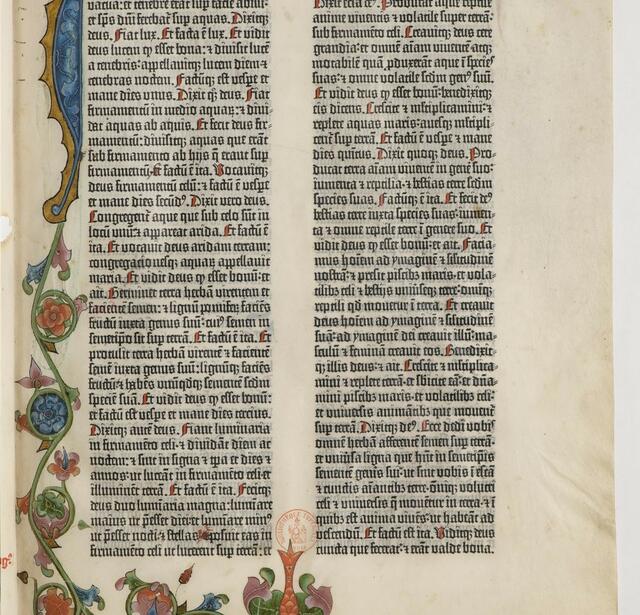 vacua: et tenebre erāt sup faciē abissi:
et sp̄s dn̄i ferebať sup aquas. Dixitq̧
deus. Fiat lux. Et facta ē lux. Et vidit
deus lucem q̄ esset bona: ⁊ divisit lucē
a tenebris: appellavitq̧ lucem diem ⁊
tenebras noctem. Factūq̧ est vespe et
mane dies unus. Dixit q̧ deus. Fiat
firmamentū in medio aquaꝝ: ⁊ divi-
dat aquas ab aquis. Et fecit deus fir-
mamentū: divisitq̧ aquas que erāt
sub firmamento ab hijs q̄ erant sup
firmamentū: ⁊ factū ē ita. Vocavitq̧
deus firmamentū celū: ⁊ factū ē vespe
et mane dies secūdꝰ. Dixit vero deus.
Congregent̄ aque que sub celo sūt in
locū unū: ⁊ appareat arida. Et factū ē
ita. Et vocavit deus aridam terram:
congregationesq̧ aquaꝝ appellavit
maria. Et vidit deus q̄ esset bonū: et
ait. Germinet terra herbā virentem et
facientē semen: ⁊ lignū pomifeꝝ faciēs
fructū iuxta genus suū: cuiꝰ semen in
semetipō sit sup terrā. Et factū ē ita. Et
protulit terra herbā virentē ⁊ facientē
semē iuxta genus suū: lignūq̧ faciēs
fructū ⁊ habēs unūqdq̧ sementē scdm̄
speciē suā. Et vidit deus q̄ esset bonū:
et factū est vespe et mane dies tercius.
Dixitq̧ autē deus. Fiant luminaria
in firmamēto celi: ⁊ dividāt diem ac
noctem: ⁊ sint in signa ⁊ tp̄a et dies ⁊
annos: ut luceāt in firmamēto celi et
illuminent terrā. Et factū ē ita. Fecitq̧
deus duo luminaria magna: lumiare
maius ut p̄esset diei et lumiare minꝰ
ut p̄esset nocti: ⁊ stellas. ⁊ posuit eas in
firmamēto celi ut lucerent sup terrā: et
Dixit ecia deꝰ. Producat aque reptile
anime viventis ⁊ volatile super terrā:
sub firmamēto celi. Creavitq̧ deus cete
grandia: et omnē aīam viventē atq̧
motabilē quā p̄duxerāt aque ī species
suas: ⁊ omne volatile scdm̄ genꝰ suū.
Et vidit deus q̄ esset bonū: benedixitq̧
eis dicens. Crescite ⁊ mltiplicamini: ⁊
replete aquas maris: avesq̧ mltipli-
cent̄ sup terrā. Et factū ē vespe ⁊ mane
dies quītus. Dixit quoq̧ deus. Pro-
ducat terra aīam viventē in genē suo:
iumenta ⁊ reptilia: ⁊ bestias terre scdm̄
species suas. Factūq̧ ē ita. Et fecit deꝰ
bestias terre iuxta species suas: iumen-
ta ⁊ omne reptile terre ī genere suo. Et
vidit deus q̄ esset bonū: et ait. Facia-
mus hoīem ad ymaginē ⁊ silitudinē
nostrā: ⁊ presit piscibꝫ maris: et vola-
tilibꝫ celi ⁊ bestijs univseq̧ terre: omiq̧
reptili qd̄ movetur ī terra. Et creavit
deus hoīem ad ymaginē ⁊ silitudinē
suā: ad ymaginē dei creavit illū: ma-
sculū ⁊ feminā creavit eos. Benedixit-
q̧ illis deus: ⁊ ait. Crescite ⁊ mltiplica-
mini ⁊ replete terrā: et sbicite eā: et dn̄a-
mini piscibꝫ maris: et volatilibꝫ celi:
et univsis animātibꝫ que movent̄
sup terrā. Dixitq̧ deꝰ. Ecce dedi vobꝭ
omnē herbā afferentē semen sup terrā:
et univsa ligna que hn̄t in semetipīs
sementē genis sui: ut sint vobis ī escā
⁊ cunctis aīantibꝫ terre: omiq̧ volucri
celi ⁊ univsis q̄ moventᷣ in terra: ⁊ ī
quibꝫ est anima vivēs: ut habeāt ad
vescendū. Et factū est ita. Viditq̧ deus
cuncta que fecerat: ⁊ erāt valde bona.